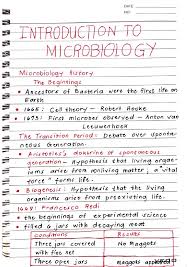 DATE
NO
INTRODUCTION TO
MICROBIOLOGY
Microbiology History
The Beginnings
• Ancestors of Bacteria were the first life on
Earth
• 1665: Cell theory - Robert Hooke
• 1673: First microbes observed - Anton van
Leeuwenhoek
The Transition Period: Debate over Spontaneous
Generation.
• Aristotle's doctrine of spontaneous
generation - Hypothesis that living organ-
isms arise from nonliving matter; a "vital
force" forms life.
• Biogenesis: Hypothesis that the living
organisms arise from preexisting life.
1668: Francesco Redi
• the beginnings of experimental science
• filled 6 jars with decaying meat
Conditions Results
Three jars covered No maggots
with fine net
Three open jars maggots appeared